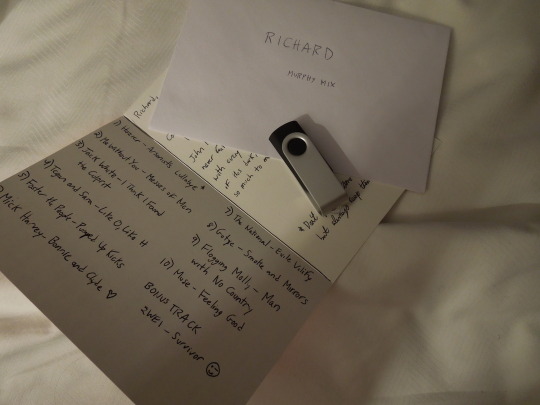 RICHARD
MURPHY MIX
Richard,
John
never
with every
of this
so much to m
but always keep the
1) Hozier - Arsonist's Lullabye *
2) MeWithout You - Messes of Men
3) Jack White - I Think I Found
the Culprit
4) Tegan and Sara - Like O, Like H
5) Foster the People - Pumped Up Kicks
Mick Harvey - Bonnie and Clyde ♡
7) The National - Exile Vilify
8) Gotye - Smoke and Mirrors
9) Flogging Molly - Man
with No Country
10) Muse - Feeling Good
BONUS TRACK
2WEI - Survivor ☺